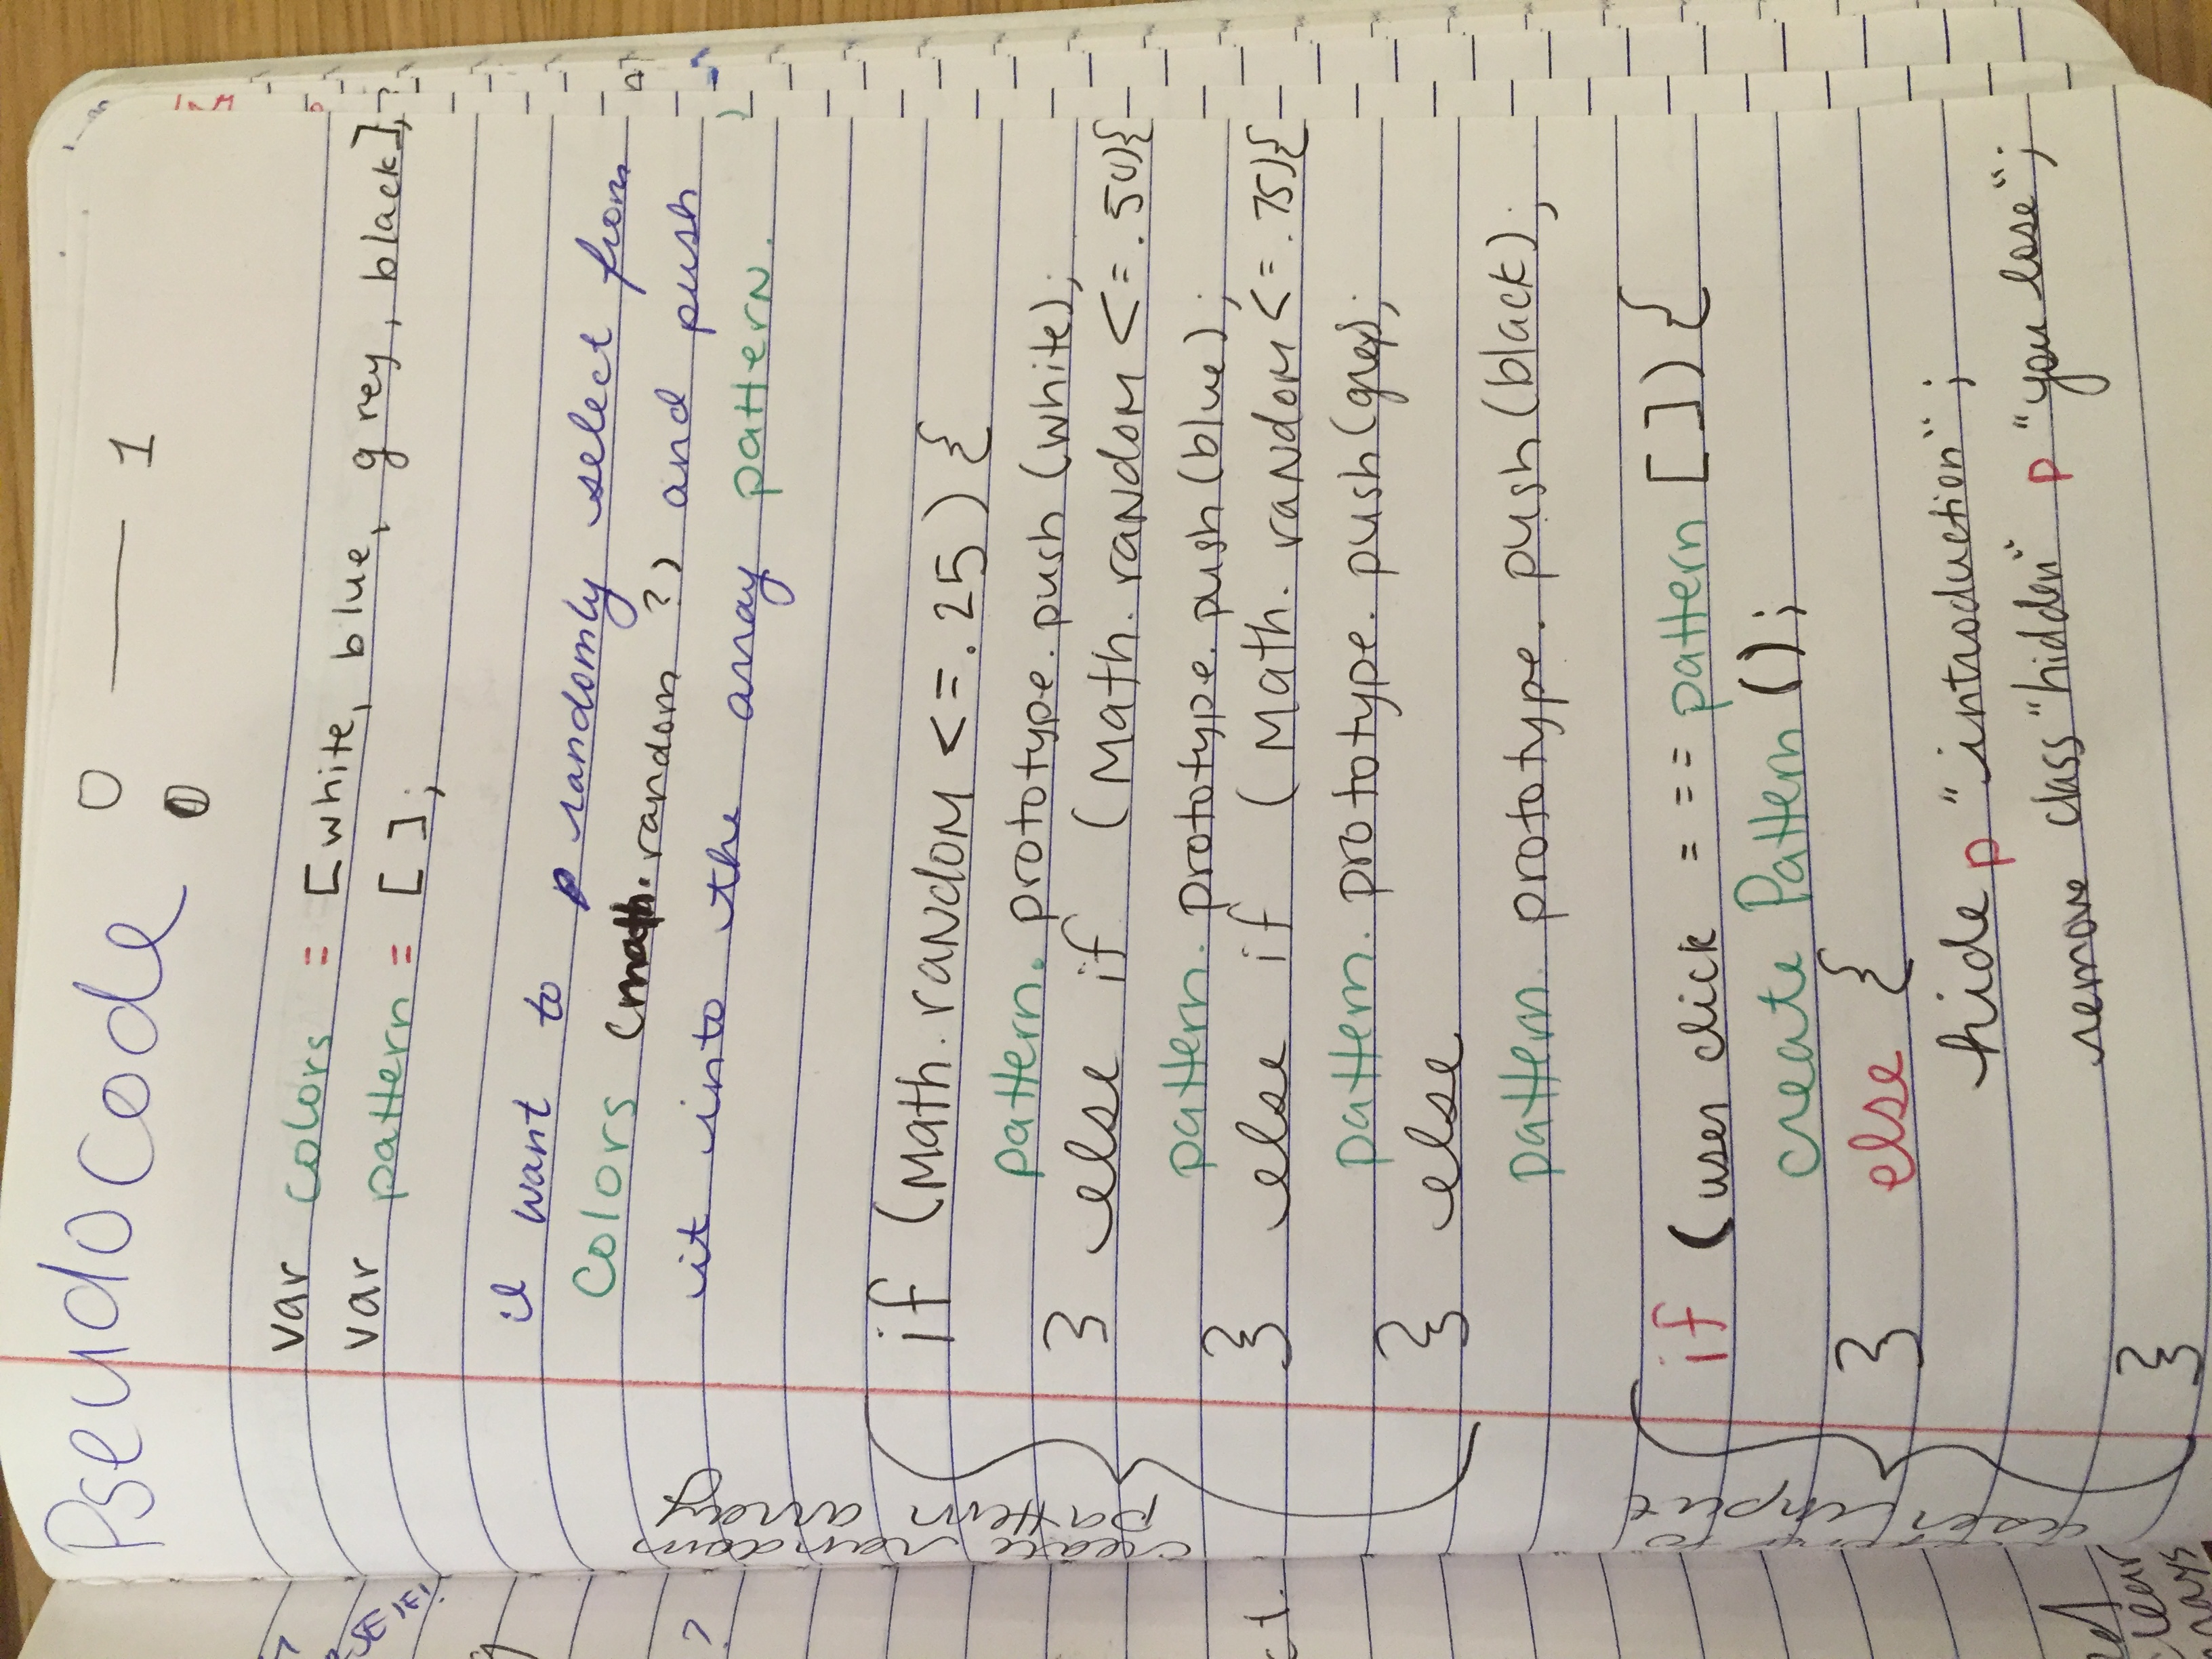 Pseudocode
0 — 1
0
var colors = [white, blue, grey, black];
var pattern = [ ];
I want to randomly select from
colors (math.random ?) and push
it into the array pattern.
create random
pattern array
if (Math.random <= .25) {
pattern.prototype.push(white);
} else if (Math.random <= .50){
pattern.prototype.push(blue);
} else if (Math.random <= .75){
pattern.prototype.push(grey);
} else
pattern.prototype.push(black);
user input
if (user click === pattern []) {
create Pattern ();
} else {
hide p "introduction";
remove class "hidden" p "you lose";
}
clear